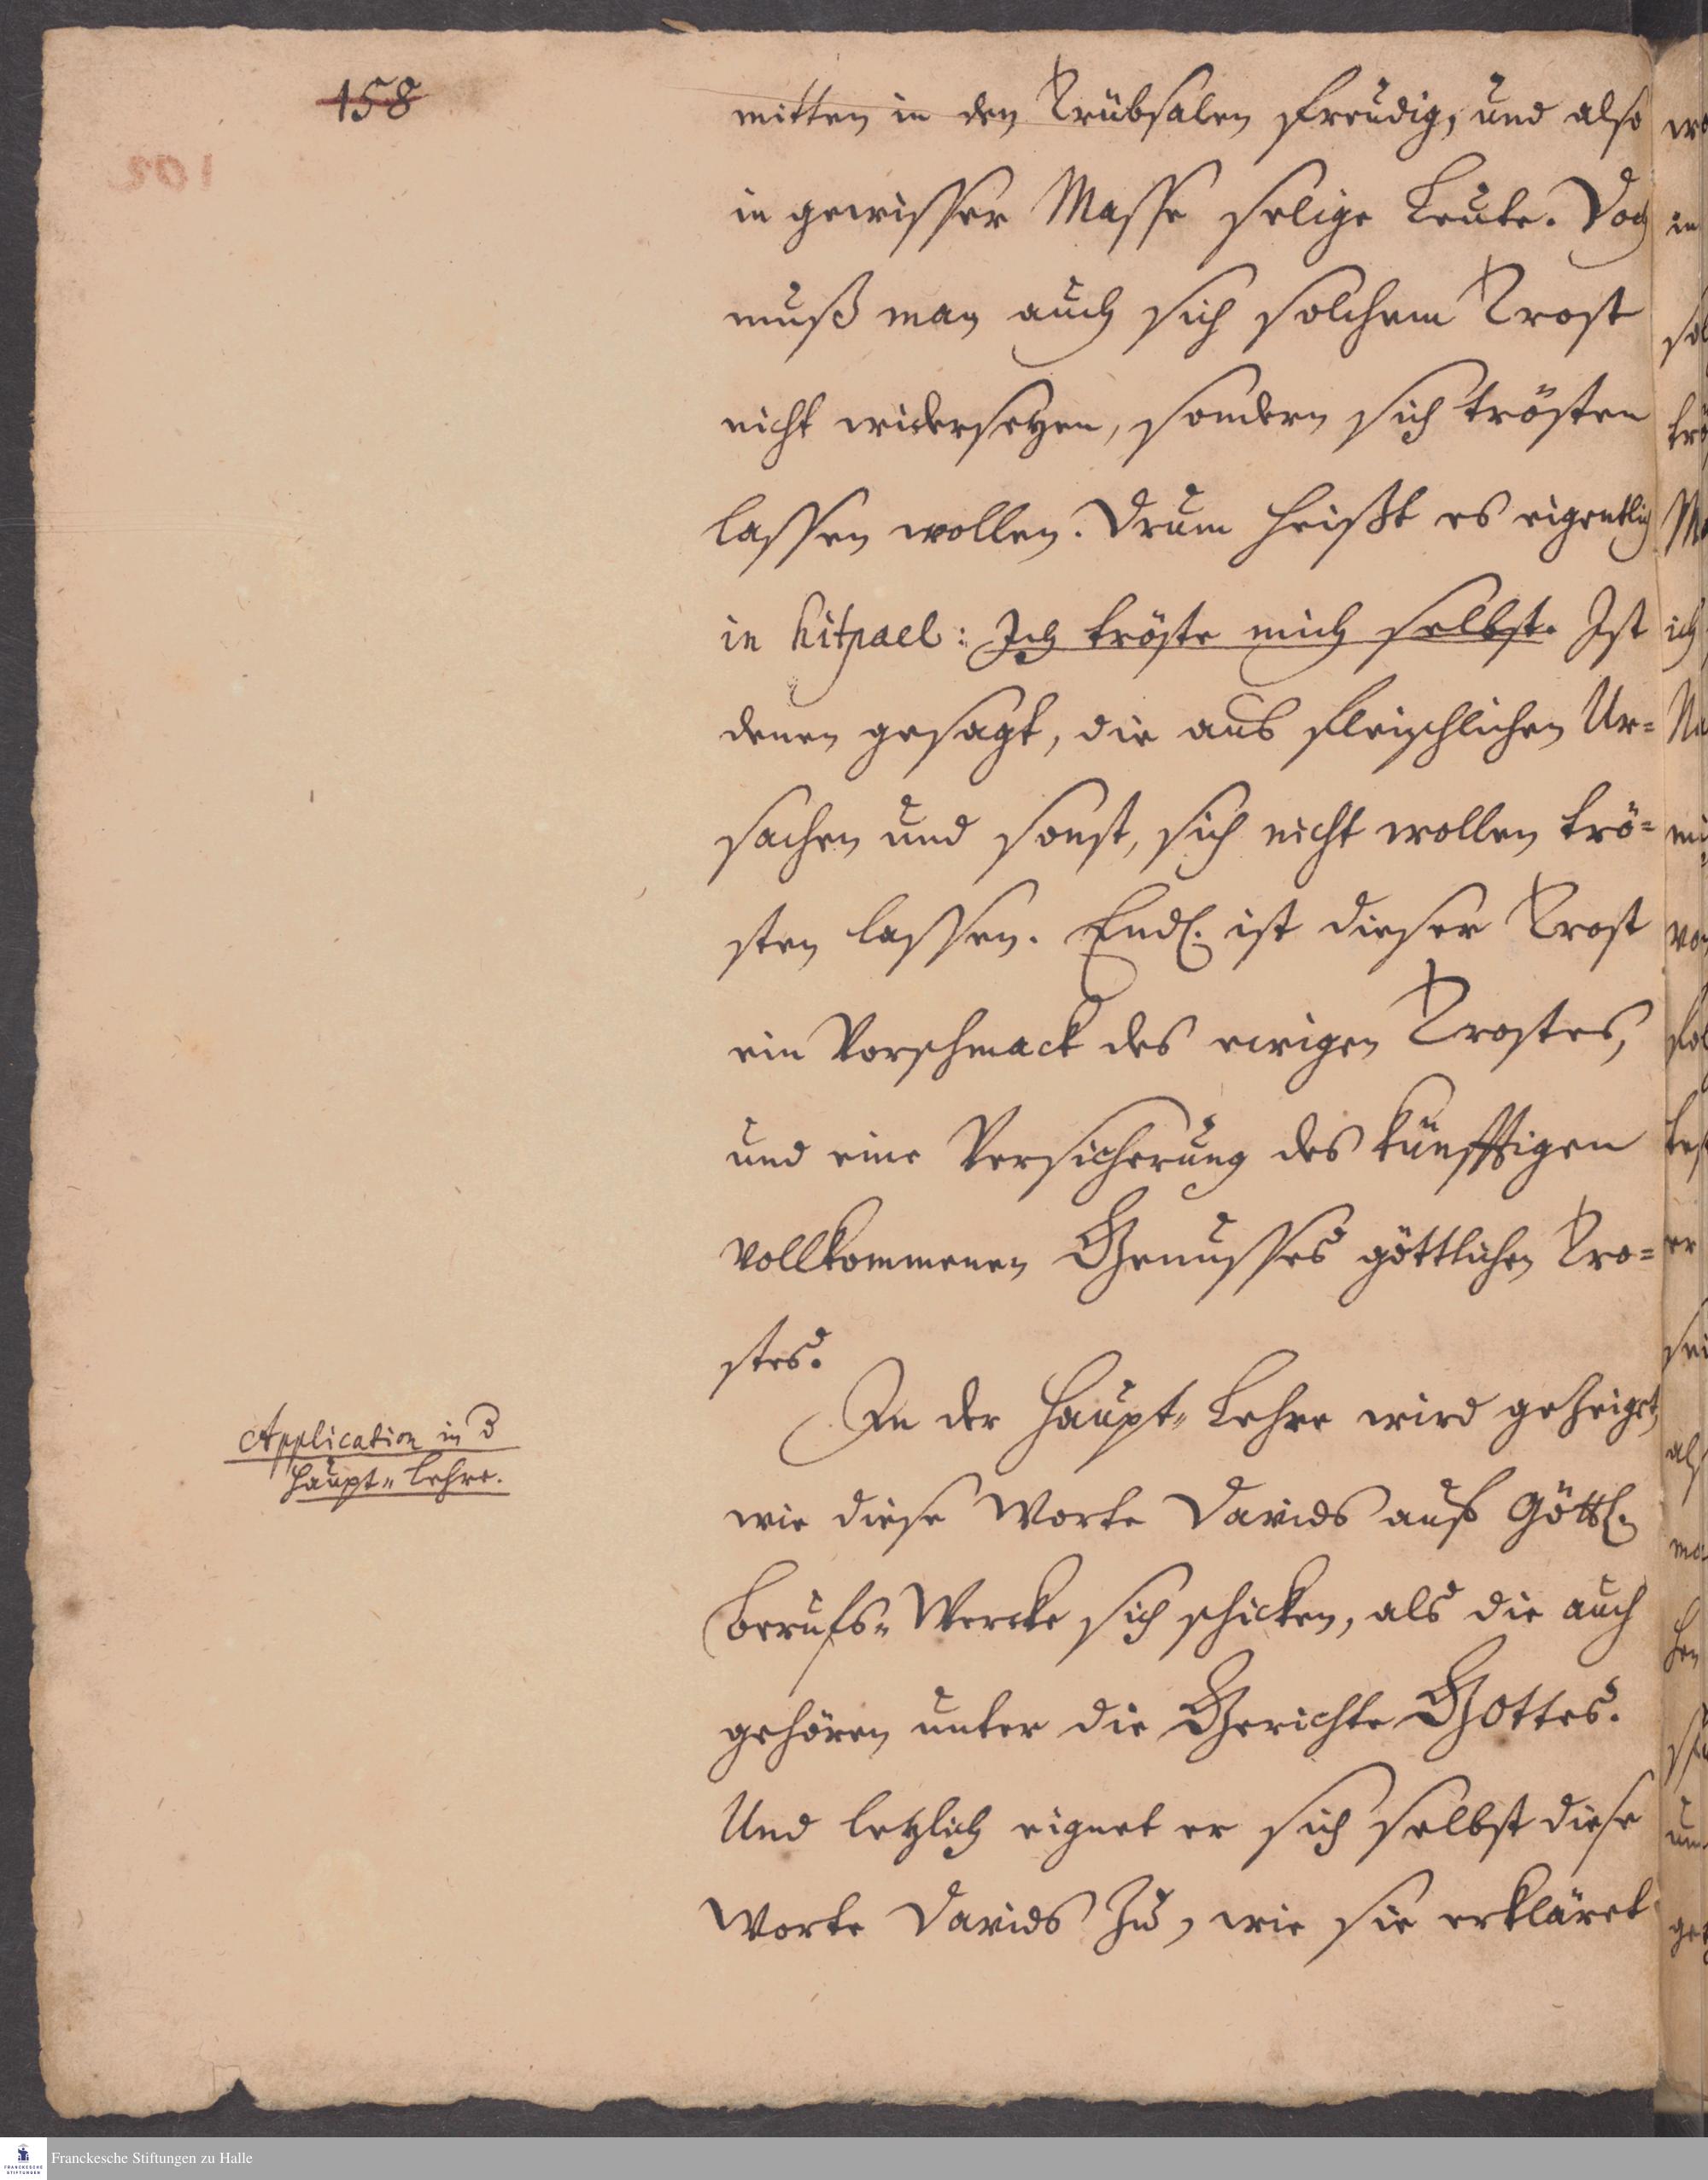 158
mitten in den Trübsalen freudig, und also
in gewisser Masse selige Leute. Doch
muß man auch sich solchem Trost
nicht widersetzen, sondern sich trösten
lassen wollen. Drum heißt es eigentlich
in hitpael: Ich tröste mich selbst. Ist
denen gesagt, die aus fleischlichen Ur=
sachen und sonst, sich nicht wollen trö=
sten lassen. Endl. ist dieser Trost
ein Vorschmack des ewigen Trostes,
und eine Versicherung des künfftigen
vollkommenen Genusses göttlichen Tro=
stes.
Application in d
Haupt=Lehre.
In der Haupt=Lehre wird gezeiget,
wie diese Worte Davids auf Göttl.
Berufs=Wercke sich schicken, als die auch
gehören unter die Gerichte Gottes.
Und letzlich eignet er sich selbst diese
Worte Davids zu, wie sie erkläret
Franckesche Stiftungen zu Halle